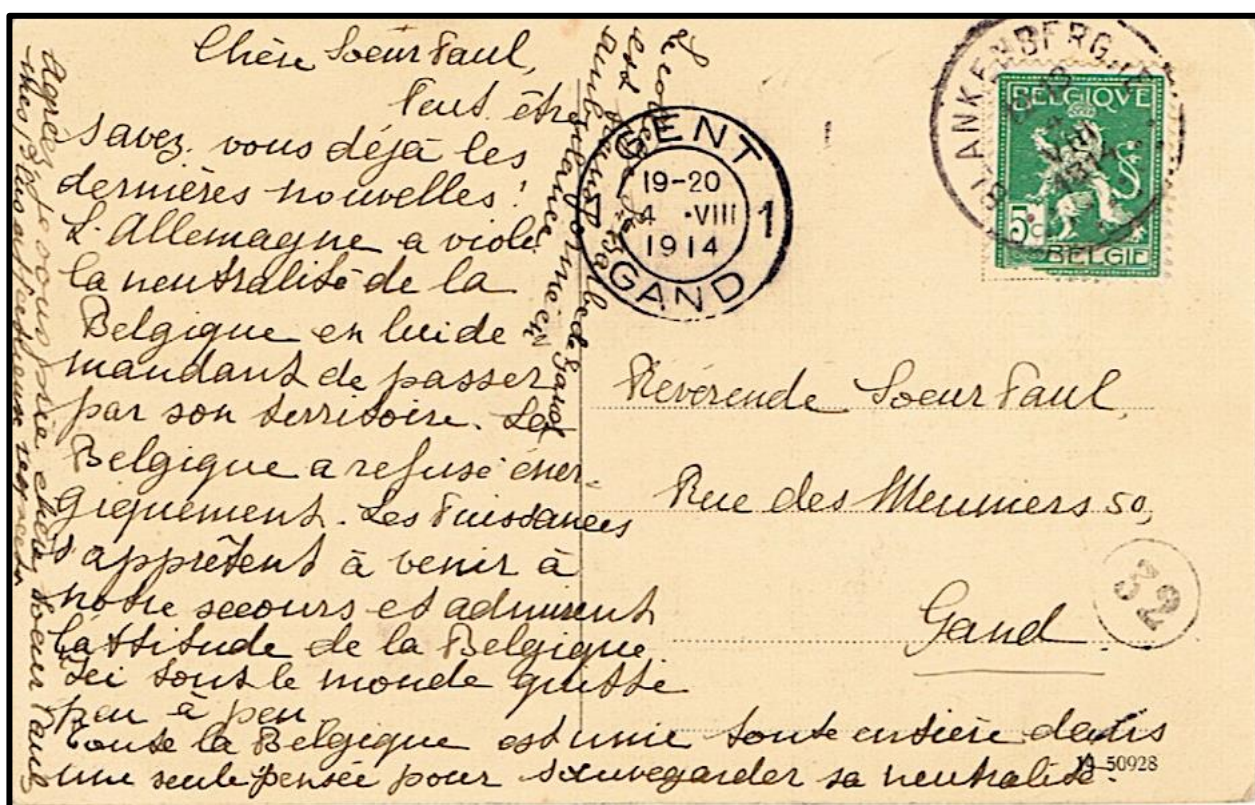 Chère Soeur Paul,
Peut être
savez-vous déjà les
dernières nouvelles!
L'Allemagne a violé
la neutralité de la
Belgique en lui de
mandant de passer
par son territoire. La
Belgique a refusé éner-
giquement. Les Puissances
s'apprêtent à venir à
notre secours et admirent
l'attitude de la Belgique.
Ici tout le monde quitte
peu à peu
Toute la Belgique est unie toute entière dans
une seule pensée pour sauvegarder sa neutralité.
Agréez, je vous prie chère Soeur Paul
mes plus affectueux respects
L'école
est
transformée en
GENT 1
19-20
4 ·VIII
1914
GAND
BLANKENBERG
1914
BELGIQUE
5c
BELGIË
Révérende Soeur Paul,
Rue des Meuniers 50,
Gand
32
50928